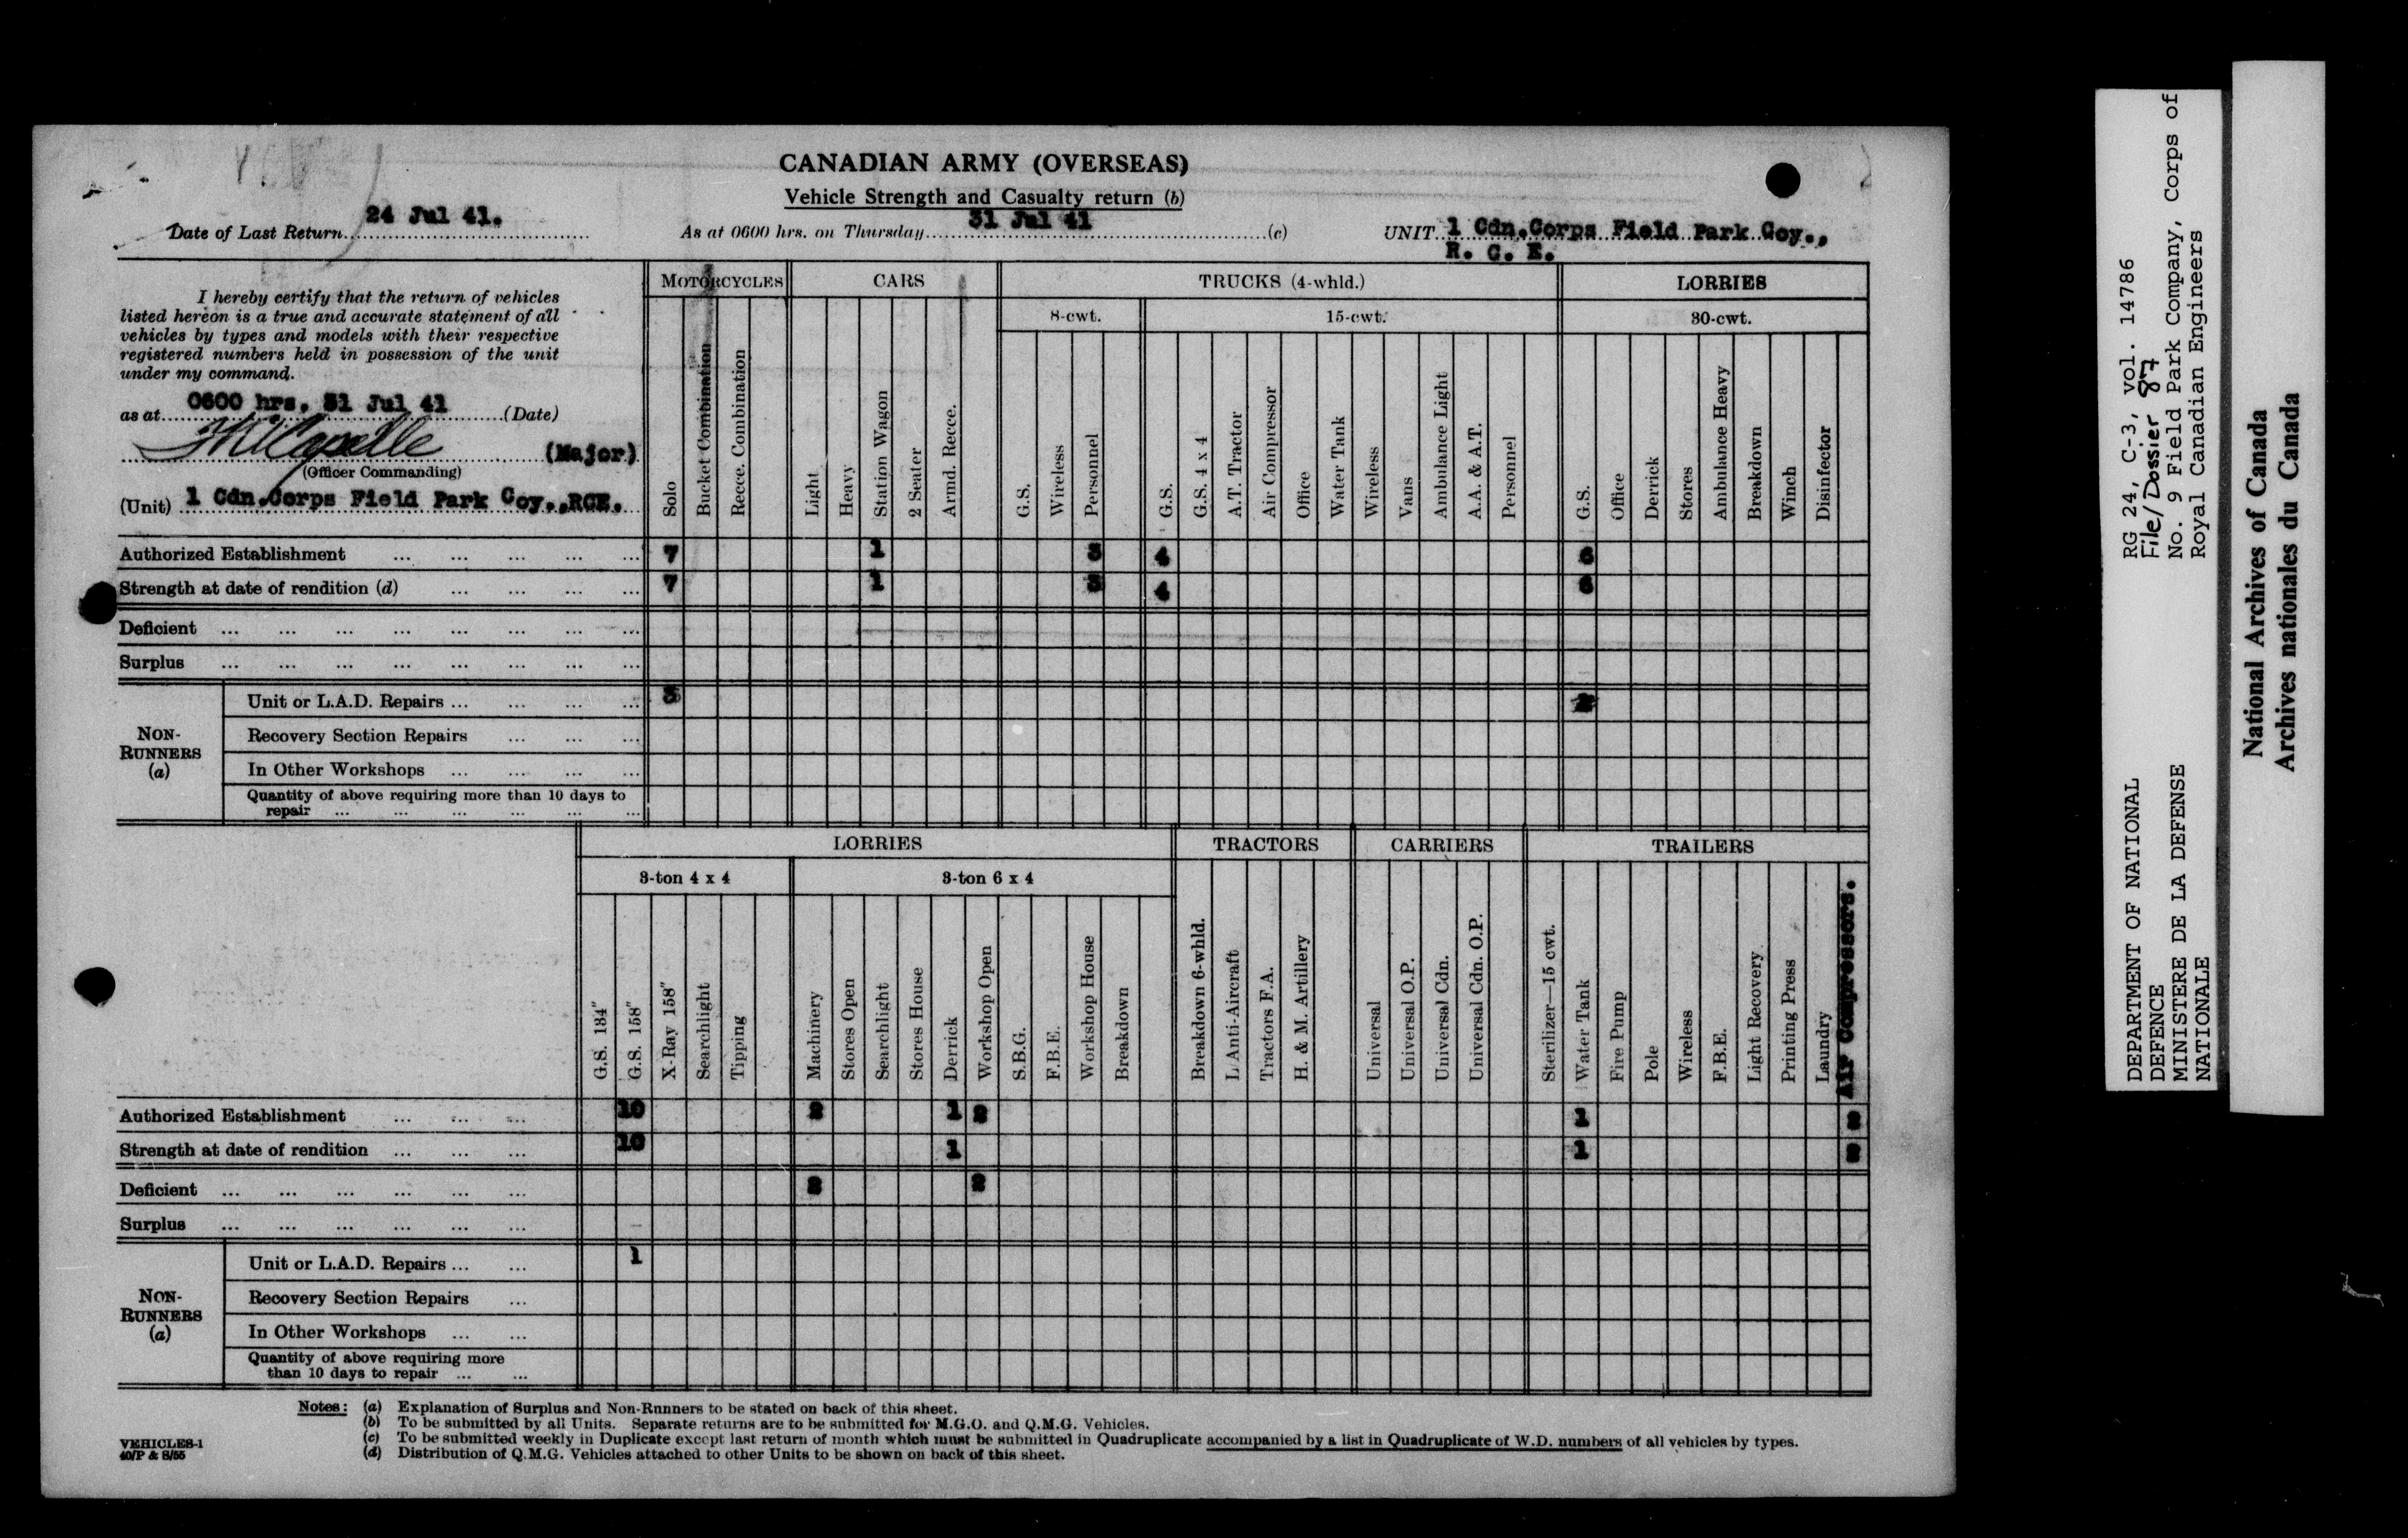 CANADIAN ARMY (OVERSEAS)
Vehicle Strength and Casualty return (b)
Date of Last Return 24 Jul 41. As at 0600 hrs. on Thursday 31 Jul 41 (c) UNIT 1 Cdn.Corps Field Park Coy.,
R. C. E.
I hereby certify that the return of vehicles
listed hereon is a true and accurate statement of all
vehicles by types and models with their respective
registered numbers held in possession of the unit
under my command.
as at 0600 hrs, 31 Jul 41 (Date)
(Major)
(Officer Commanding)
(Unit) 1 Cdn.Corps Field Park Coy.,RCE.
MOTORCYCLES CARS TRUCKS (4-whld.) LORRIES
8-cwt. 15-cwt. 30-cwt.
Solo
Bucket Combination
Recce. Combination
Light
Heavy
Station Wagon
2 Seater
Armd. Recce.
G.S.
Wireless
Personnel
G.S.
G.S. 4 x 4
A.T. Tractor
Air Compressor
Office
Water Tank
Wireless
Vans
Ambulance Light
A.A. & A.T.
Personnel
G.S.
Office
Derrick
Stores
Ambulance Heavy
Breakdown
Winch
Disinfector
Authorized Establishment ... ... ... ... ... 7 1 3 4 6
Strength at date of rendition (d) ... ... ... ... 7 1 3 4 6
Deficient ... ... ... ... ... ... ... ...
Surplus ... ... ... ... ... ... ... ...
NON-RUNNERS (a)
Unit or L.A.D. Repairs ... ... ... ...
Recovery Section Repairs ... ... ...
In Other Workshops ... ... ... ...
Quantity of above requiring more than 10 days to
repair ... ... ... ... ... ...
LORRIES TRACTORS CARRIERS TRAILERS
3-ton 4 x 4 3-ton 6 x 4
G.S. 134"
G.S. 158"
X-Ray 158"
Searchlight
Tipping
Machinery
Stores Open
Searchlight
Stores House
Derrick
Workshop Open
S.B.G.
F.B.E.
Workshop House
Breakdown
Breakdown 6-whld.
L Anti-Aircraft
Tractors F.A.
H. & M. Artillery
Universal
Universal O.P.
Universal Cdn.
Universal Cdn. O.P.
Sterilizer—15 cwt.
Water Tank
Fire Pump
Pole
Wireless
F.B.E.
Light Recovery
Printing Press
Laundry
Air Compressors.
Authorized Establishment ... ... ... 10 2 1 2 1 2
Strength at date of rendition ... ... ... 10 1 1 2
Deficient ... ... ... ... ... ... 2 2
Surplus ... ... ... ... ... ...
NON-RUNNERS (a)
Unit or L.A.D. Repairs ... ... 1
Recovery Section Repairs ...
In Other Workshops ... ...
Quantity of above requiring more
than 10 days to repair ... ...
Notes: (a) Explanation of Surplus and Non-Runners to be stated on back of this sheet.
(b) To be submitted by all Units. Separate returns are to be submitted for M.G.O. and Q.M.G. Vehicles.
(c) To be submitted weekly in Duplicate except last return of month which must be submitted in Quadruplicate accompanied by a list in Quadruplicate of W.D. numbers of all vehicles by types.
(d) Distribution of Q.M.G. Vehicles attached to other Units to be shown on back of this sheet.
VEHICLES-1
40/P & S/55
DEPARTMENT OF NATIONAL
DEFENCE
MINISTERE DE LA DEFENSE
NATIONALE
RG 24, C-3, vol. 14786
File/Dossier 87
No. 9 Field Park Company, Corps of
Royal Canadian Engineers
National Archives of Canada
Archives nationales du Canada